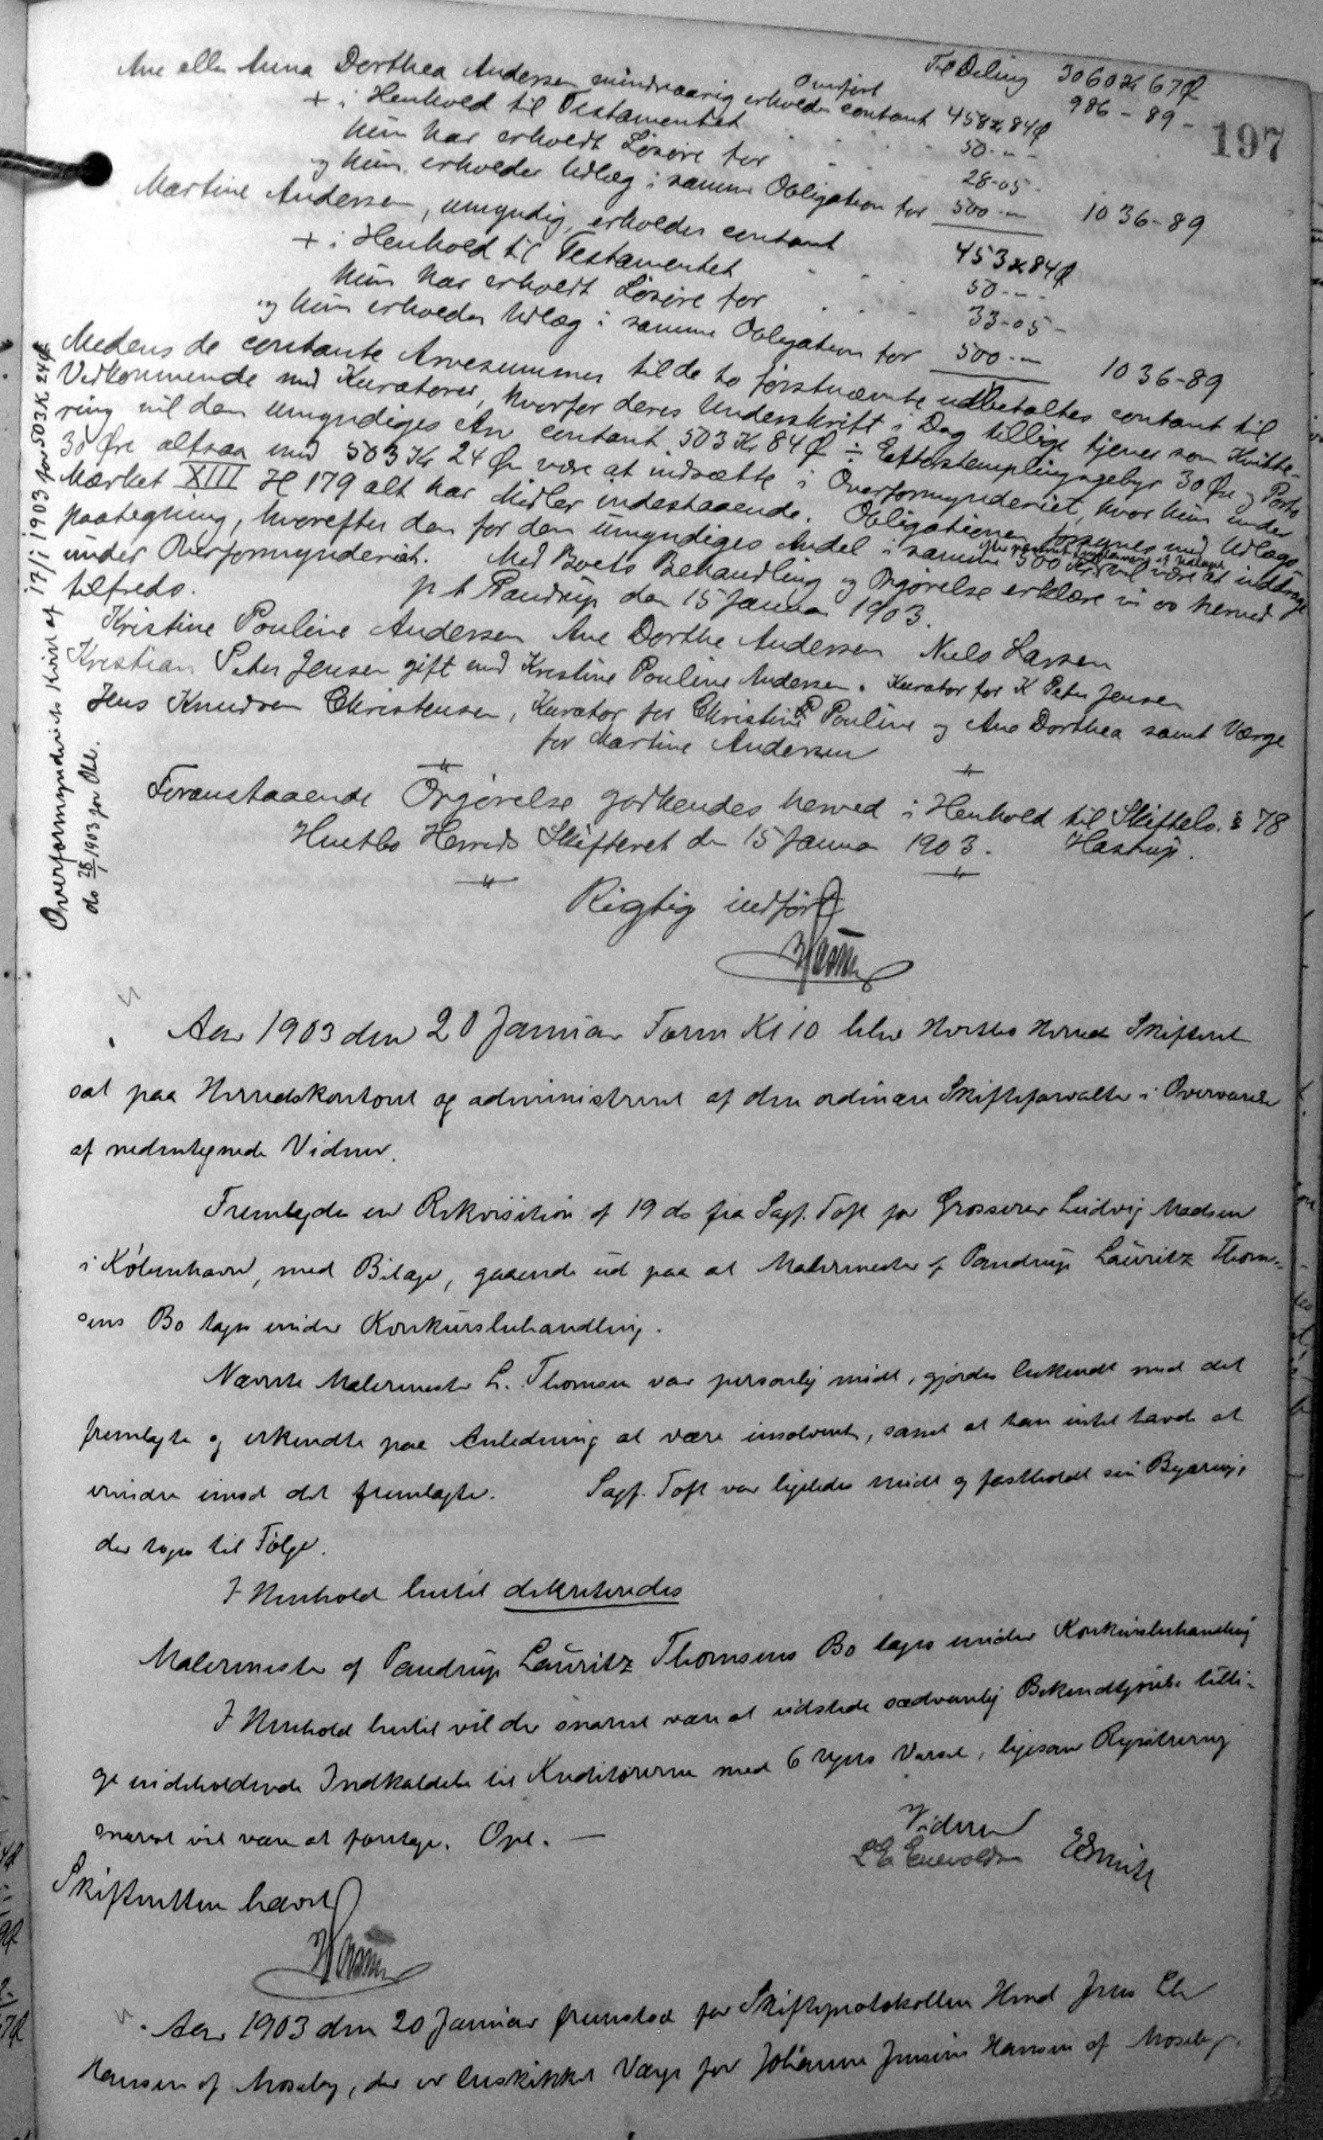 197
Til Deling 3060 Kr 67 Ø
Overført 986 - 89 -
Ane eller Anna Dorthea Andersen mindreaarig erholder contant 458 Kr 84 Ø
+ i Henhold til Testamentet 50 - " -
hun har erholdt Løsøre for 28 - 05 -
og hun erholder Udlæg i samme Obligation for 500 - " 1036 - 89
Martine Andersen, umyndig, erholder contant 453 Kr 84 Ø
+ i Henhold til Testamentet 50 - " -
hun har erholdt Løsøre for 33 - 05 -
og hun erholder Udlæg i samme Obligation for 500 - " 1036 - 89
Medens de contante Arvesummer til de to førstnævnte udbetaltes contant til
Vedkommende med Kuratorer, hvorfor deres Underskrift i Dag tillige tjener som Kvitte-
ring vil den umyndiges Arv contant 503 Kr 84 Ø ÷ Efterstemplingsgebyr 30 Øre og Porto
30 Øre altsaa med 503 Kr 24 Ør være at indsætte i Overformynderiet, hvor hun under
Mærket XIII H 179 alt har Midler indestaaende. Obligationen forsynes med Udlægs-
paategning, hvorefter den for den umyndiges Andel i samme 500 Kr vil være at inddrage
under Overformynderiet. Med Boets Behandling og Opgørelse erklære vi os herved
tilfreds. p t Pandrup den 15 Januar 1903.
Kristine Pouline Andersen Ane Dorthe Andersen Niels Larsen
Kristian Peter Jensen gift med Kristine Pouline Andersen. Kurator for K Peter Jensen
Jens Knudsen Christensen, Kurator for Christine P Pouline og Ane Dorthea samt Værge
for Martine Andersen
Overformynderiets Kvit af 17/1 1903 for 503 K. 24 Ø.
do 28/1903 for Obl.
Foranstaaende Opgørelse godkendes herved i Henhold til Skiftelo. § 78
Hvetbo Herreds Skifteret den 15 Januar 1903. Hastrup.
Rigtig indført
Aar 1903 den 20 Januar Form Kl 10 blev Hvetbo Herreds Skifteret
sat paa Herredskontoret og administreret af den ordinære Skifteforvalter i Overværelse
af nedentegnede Vidner.
Fremlagdes en Rekvisition af 19 ds fra Sagf. Toft for Grosserer Ludvig Madsen
i København, med Bilage, gaaende ud paa at Malermester af Pandrup Lauritz Thom-
sens Bo tages under Konkursbehandling.
Nævnte Malermester L. Thomsen var personlig mødt, gjordes bekendt med det
fremlagte og erkendte paa Anledning at være insolvent, samt at han intet havde at
erindre imod det fremlagte. Sagf. Toft var ligeledes mødt og fastholdt sin Begæring,
der toges til Følge.
I Henhold hertil dekreteredes
Malermester af Pandrup Lauritz Thomsens Bo tages under Konkursbehandling
I Henhold hertil vil der snarest være at udstede sædvanlig Bekendtgørelse tilli-
ge indeholdende Indkaldelse til Kreditorerne med 6 Ugers Varsel, ligesom Registrering
snarest vil være at foretage. Opl. —
Vidner
Skifteretten hævet
L E Enevoldsen E Smith
Aar 1903 den 20 Januar fremstod for Skifteprotokollen Hmd Jens Chr
Hansen af Moseby, der er beskikket Værge for Johanne Jensine Hansen af Moseby.